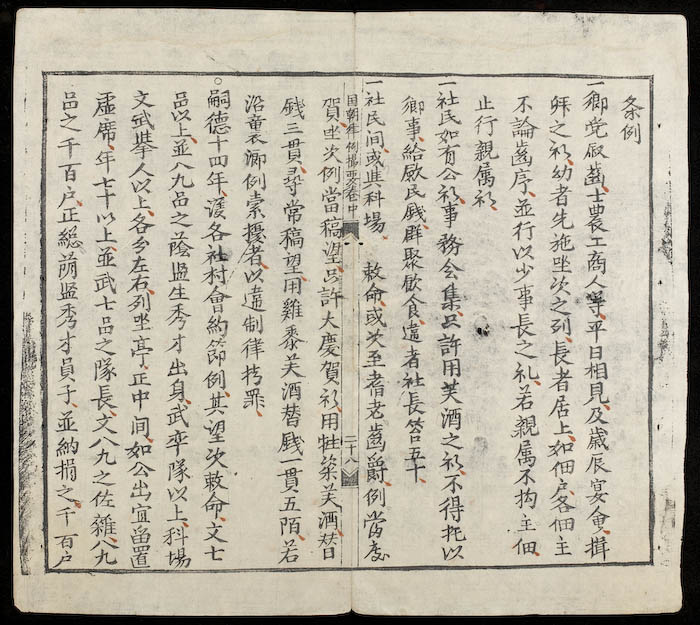 条例
一鄉党叙齒士農工商人等平日相見及歲辰宴會揖
拜之礼幼者先施坐次之列長者居上如佃户各佃主
不論齒序並行以少事長之礼若親属不拘主佃
止行親属礼
一社民如有公礼事務会集只許用芙酒之礼不得托以
鄉事給厭民錢群聚飲食違者社長笞五十
一社民间或典科場 敕命或次至耆老齒爵例當慶
国朝律例撮要卷中 二十八
賀坐次例當稿望只許大慶賀礼用牲粢芙酒替
錢三貫尋常稿望用雞黍芙酒替錢一貫五陌若
沿鄉例索擾者以違制律罪
○嗣德十四年議各社村會約節例其望次敕命文七
品以上並八九品之蔭监生秀才出身武卒隊以上科場
文武举人以上各分左右列坐亭正中间如公出宜留置
虚席年七十以上並武士品之隊長文八九之佐雜八九
品之千百户正總蔭监秀才員子並納捐之千百户